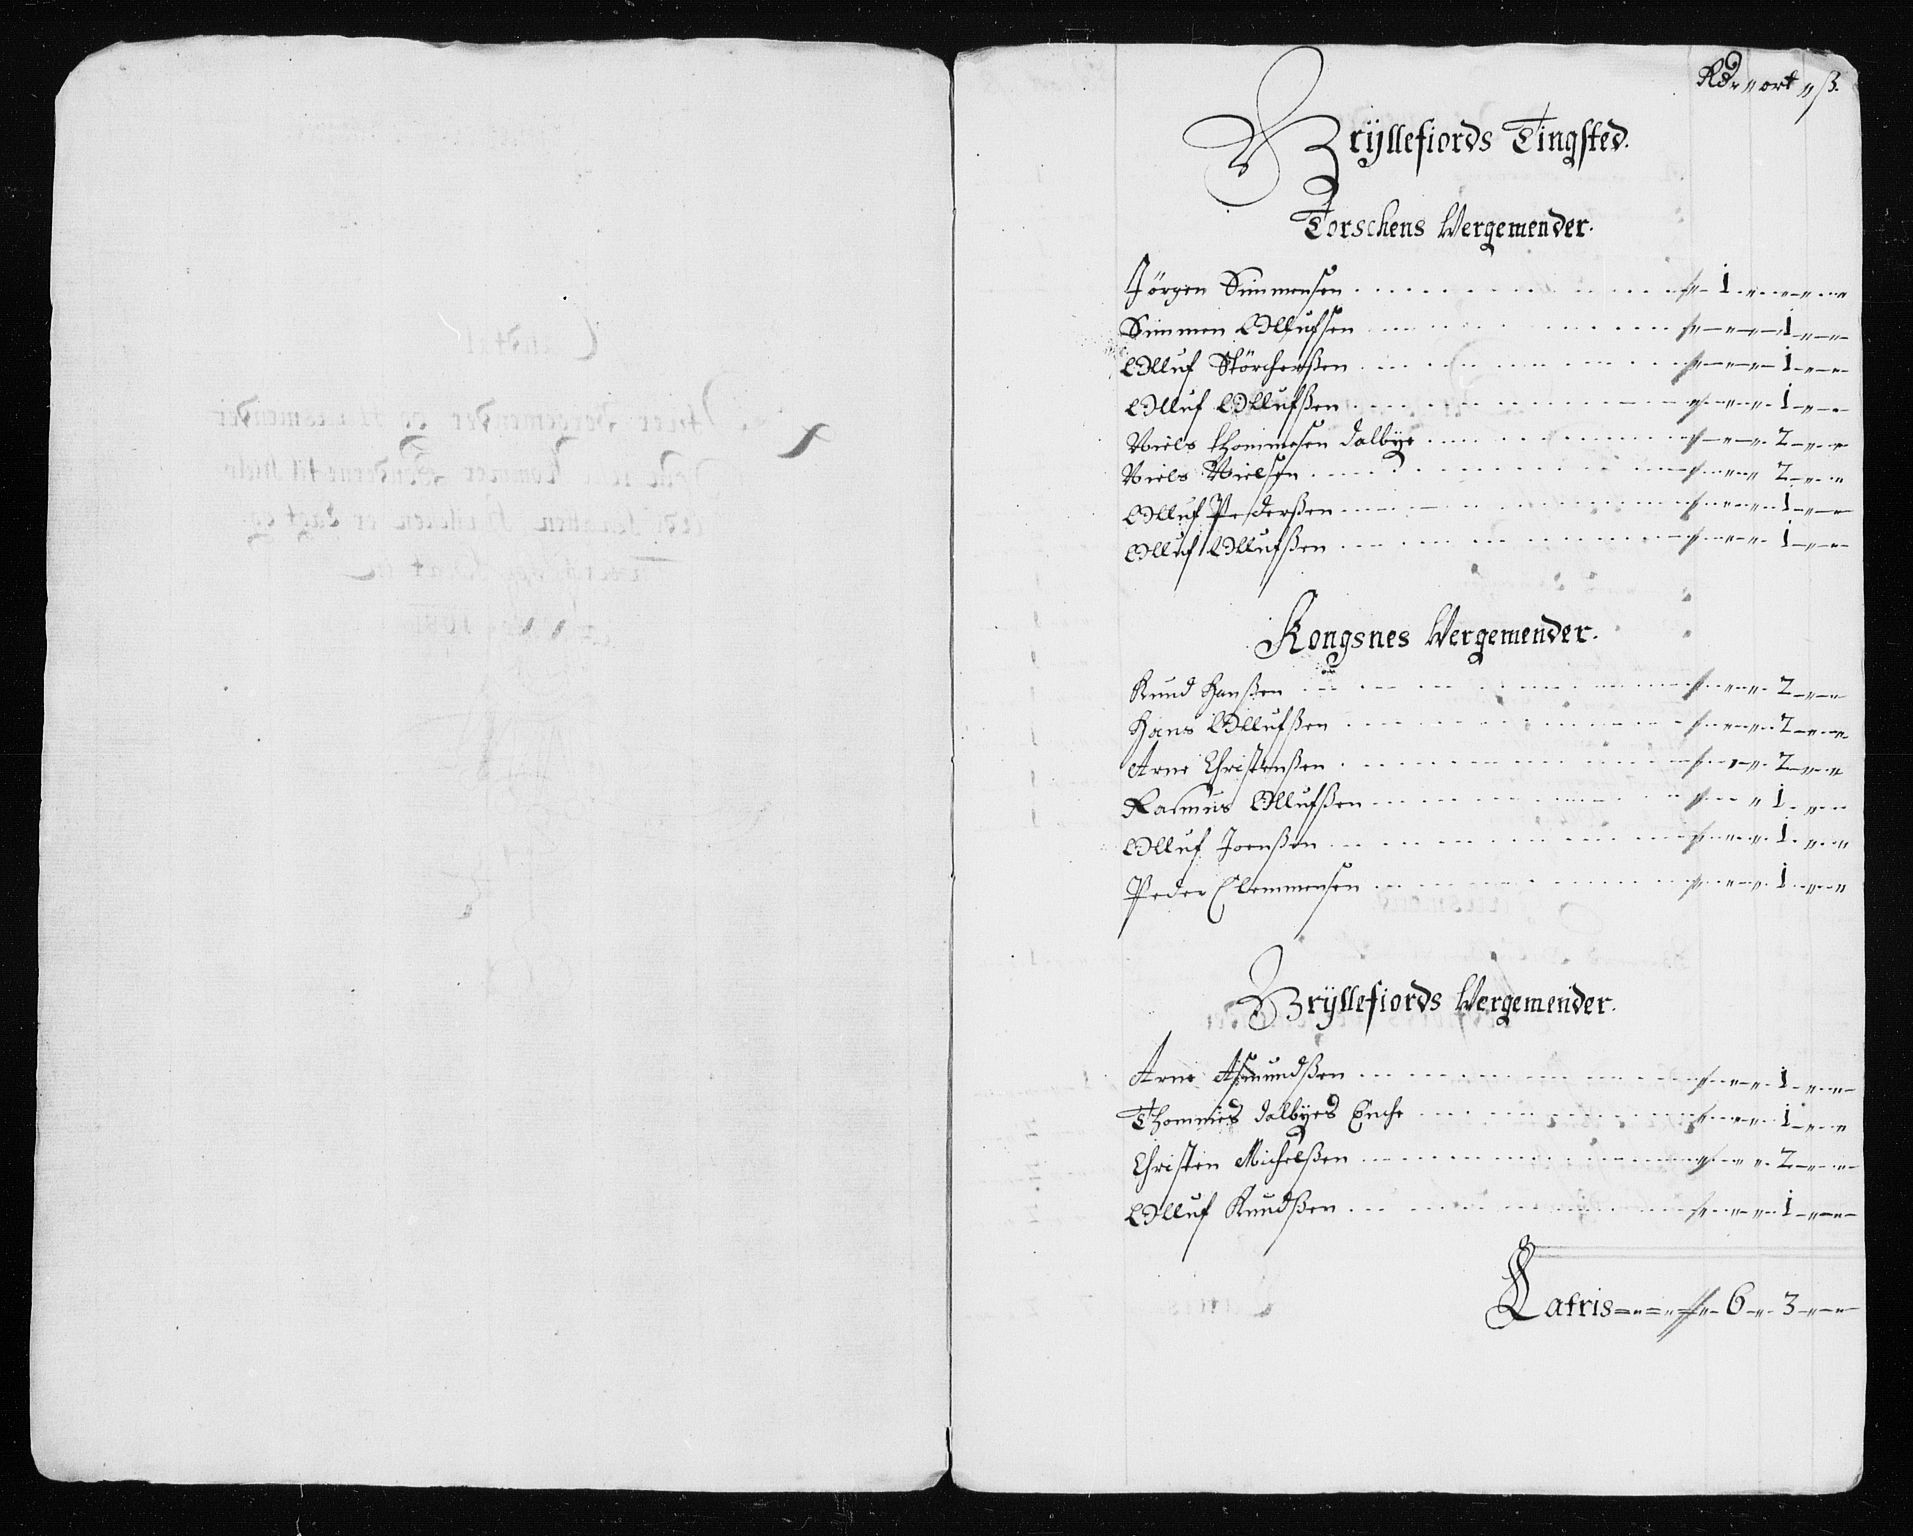 Rdr " ort " ß.
Brÿllefiords Tingsted.
Torschens Vergemender.
Jörgen Simmensen 1 " "
Simmen Ollufsen " 1 "
Olluf Störcherßen " 1 "
Olluf Ollufßen " 1 "
Niels thommesen dalbye " 2 "
Niels Nielsen " 2 "
Olluf Pederßen " 1 "
Olluf Ollufßen " 1 "
Kongsnes Vergemender.
Knud Hanßen " 2 "
Hans Ollufßen " 2 "
Arne Christenßen " 2 "
Rasmus Ollufßen " 1 "
Olluf Joenßen " 1 "
Peder Clemmensen " 1 "
Brÿllefiords Vergemender.
Arne Asmundßen " 1 "
Thommes dalbyes Enche " 1 "
Christen Michelßen " 2 "
Olluf Knudßen " 1 "
Latris 6 " 3 "